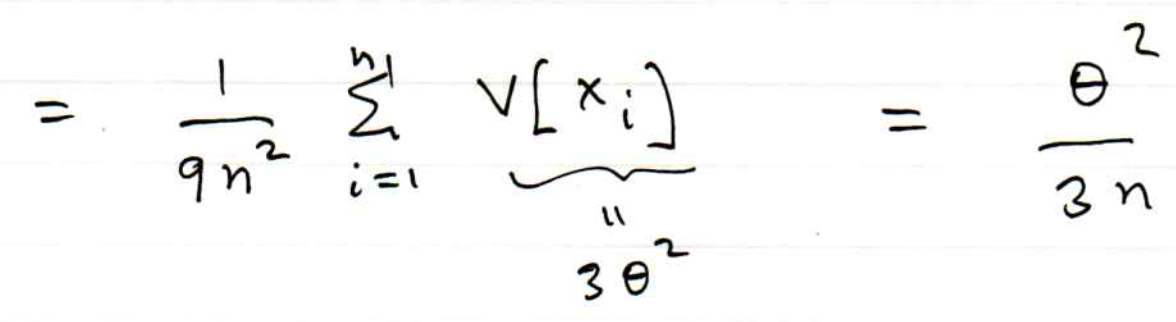 = \frac{1}{9n^2} \sum_{i=1}^{n} \underbrace{V[x_i]}_{\substack{|| \\ 3\theta^2}} = \frac{\theta^2}{3n}